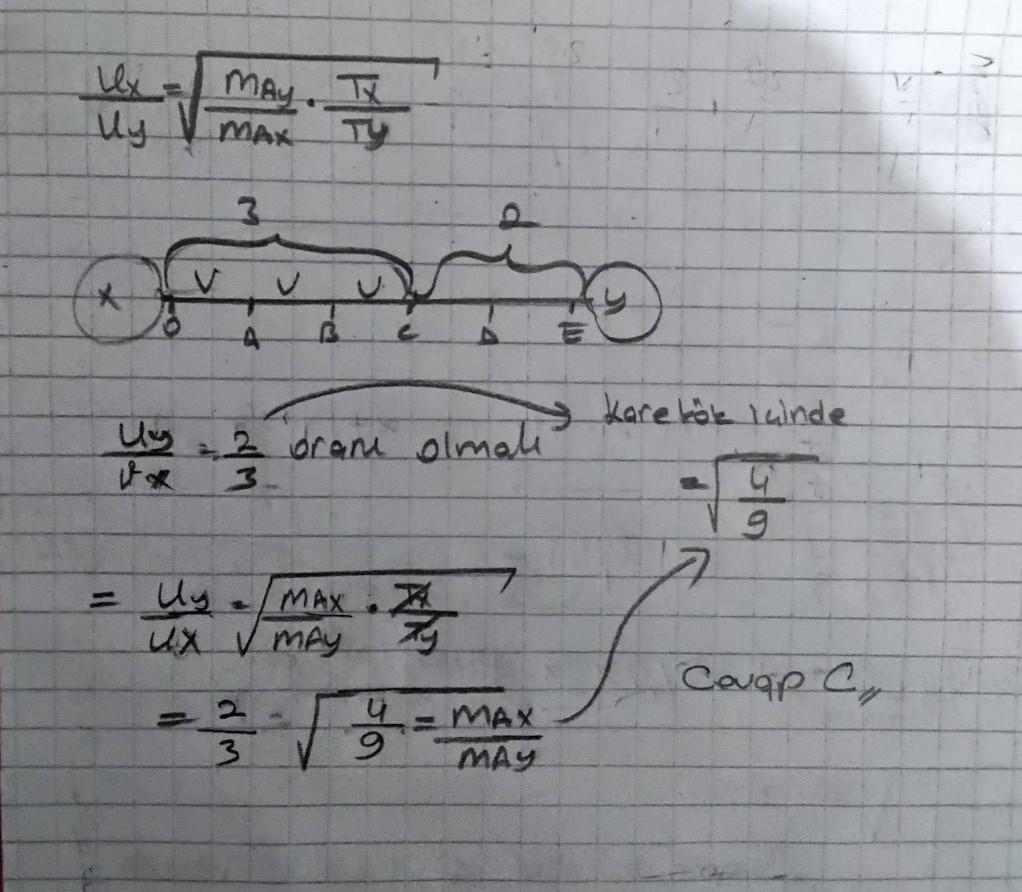 Ux/Uy = √(MAy/MAx . Tx/Ty)
3 2
x V V V y
O A B C D E
Uy/Vx = 2/3 oranı olmalı → Karekök içinde
= √(4/9)
= Uy/Ux = √(MAx/MAy . Tx/Ty)
Cevap C,,
= 2/3 = √(4/9 = MAx/MAy)